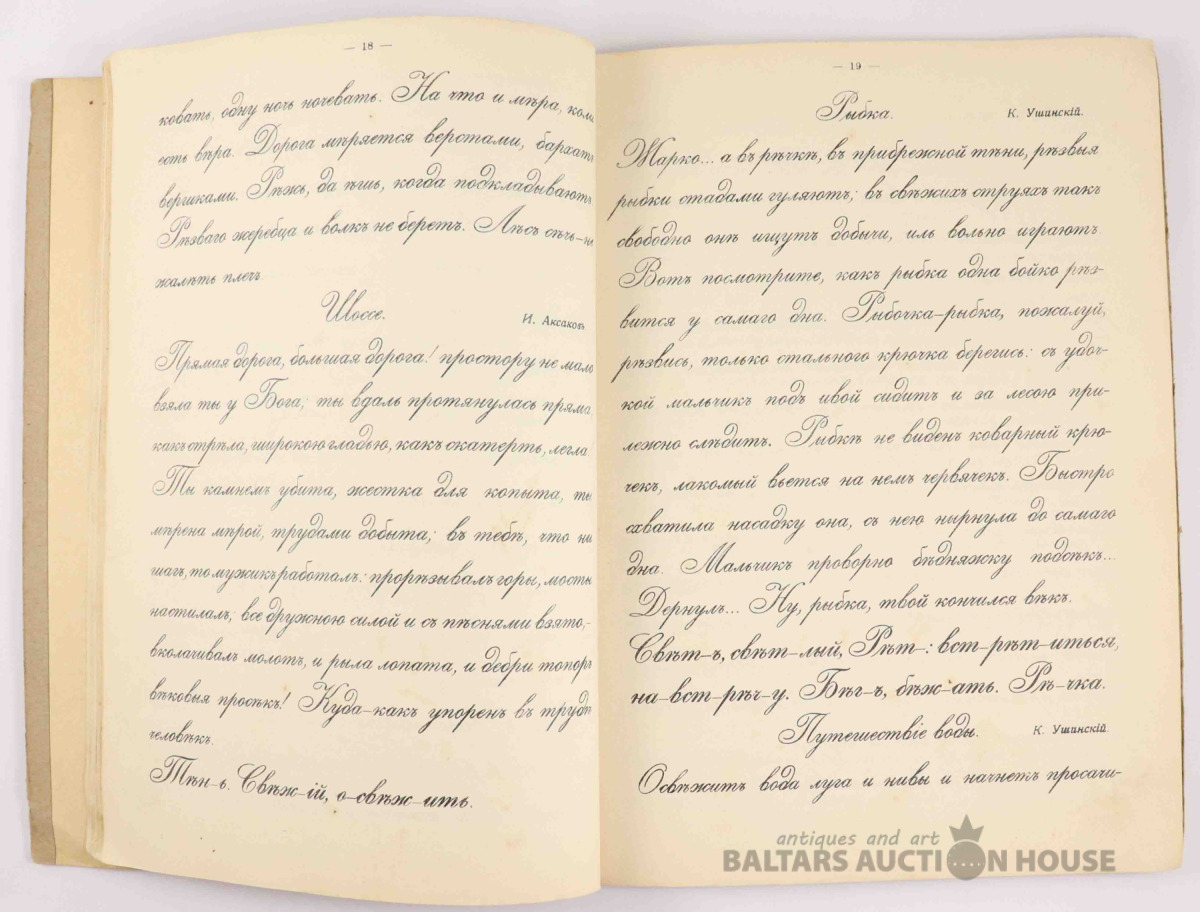 — 18 —
ковать, одну ночь ночевать. На что и мѣра, коли
есть вѣра. Дорога мѣряется верстами, бархатъ
вершками. Рѣжь, да ѣшь, когда подкладываютъ
Рѣзваго жеребца и волкъ не беретъ. Лѣсъ сѣчь—не
жалѣть плечъ.
Шоссе.
И. Аксаковъ
Прямая дорога, большая дорога! простору не мало
взяла ты у Бога; ты вдаль протянулась пряма
какъ стрѣла, широкою гладью, какъ скатерть, легла!
Ты камнемъ убита, жестка для копыта, ты
мѣрена мѣрой, трудами добыта; въ тебѣ, что ни
шагъ, то мужикъ работалъ: прорѣзывалъ горы, мосты
настилалъ; все дружною силой и съ пѣснями взято,—
вколачивалъ молотъ, и рыла лопата, и дебри топоръ
вѣковыя просѣкъ! Куда—какъ упоренъ въ трудѣ
человѣкъ.
Тѣн—ь. Свѣж—ій, о—свѣж—ить.
— 19 —
Рыбка.
К. Ушинскій.
Жарко... а въ рѣчкѣ, въ прибрежной тѣни, рѣзвыя
рыбки стадами гуляютъ; въ свѣжихъ струяхъ такъ
свободно онѣ ищутъ добычи, иль вольно играютъ
Вотъ посмотрите, какъ рыбка одна бойко рѣз-
вится у самаго дна. Рыбочка-рыбка, пожалуй,
рѣзвись, только стального крючка берегись: съ удоч-
кой мальчикъ подъ ивой сидитъ и за лесою при-
лежно слѣдитъ. Рыбкѣ не виденъ коварный крю-
чекъ, лакомый вьется на немъ червячекъ. Быстро
схватила насадку она, съ нею нирнула до самаго
дна. Мальчикъ проворно бѣдняжку подсѣкъ...
Дернулъ... Ну, рыбка, твой кончился вѣкъ.
Свѣт—ъ, свѣт—лый, Рѣт—: вст—рѣт—иться,
на—вст—рѣч—у. Бѣг—ъ, бѣж—ать. Рѣ—чка.
Путешествіе воды.
К. Ушинскій.
Освѣжитъ вода луга и нивы и начнетъ просачи-
antiques and art
BALTARS AUCTION HOUSE